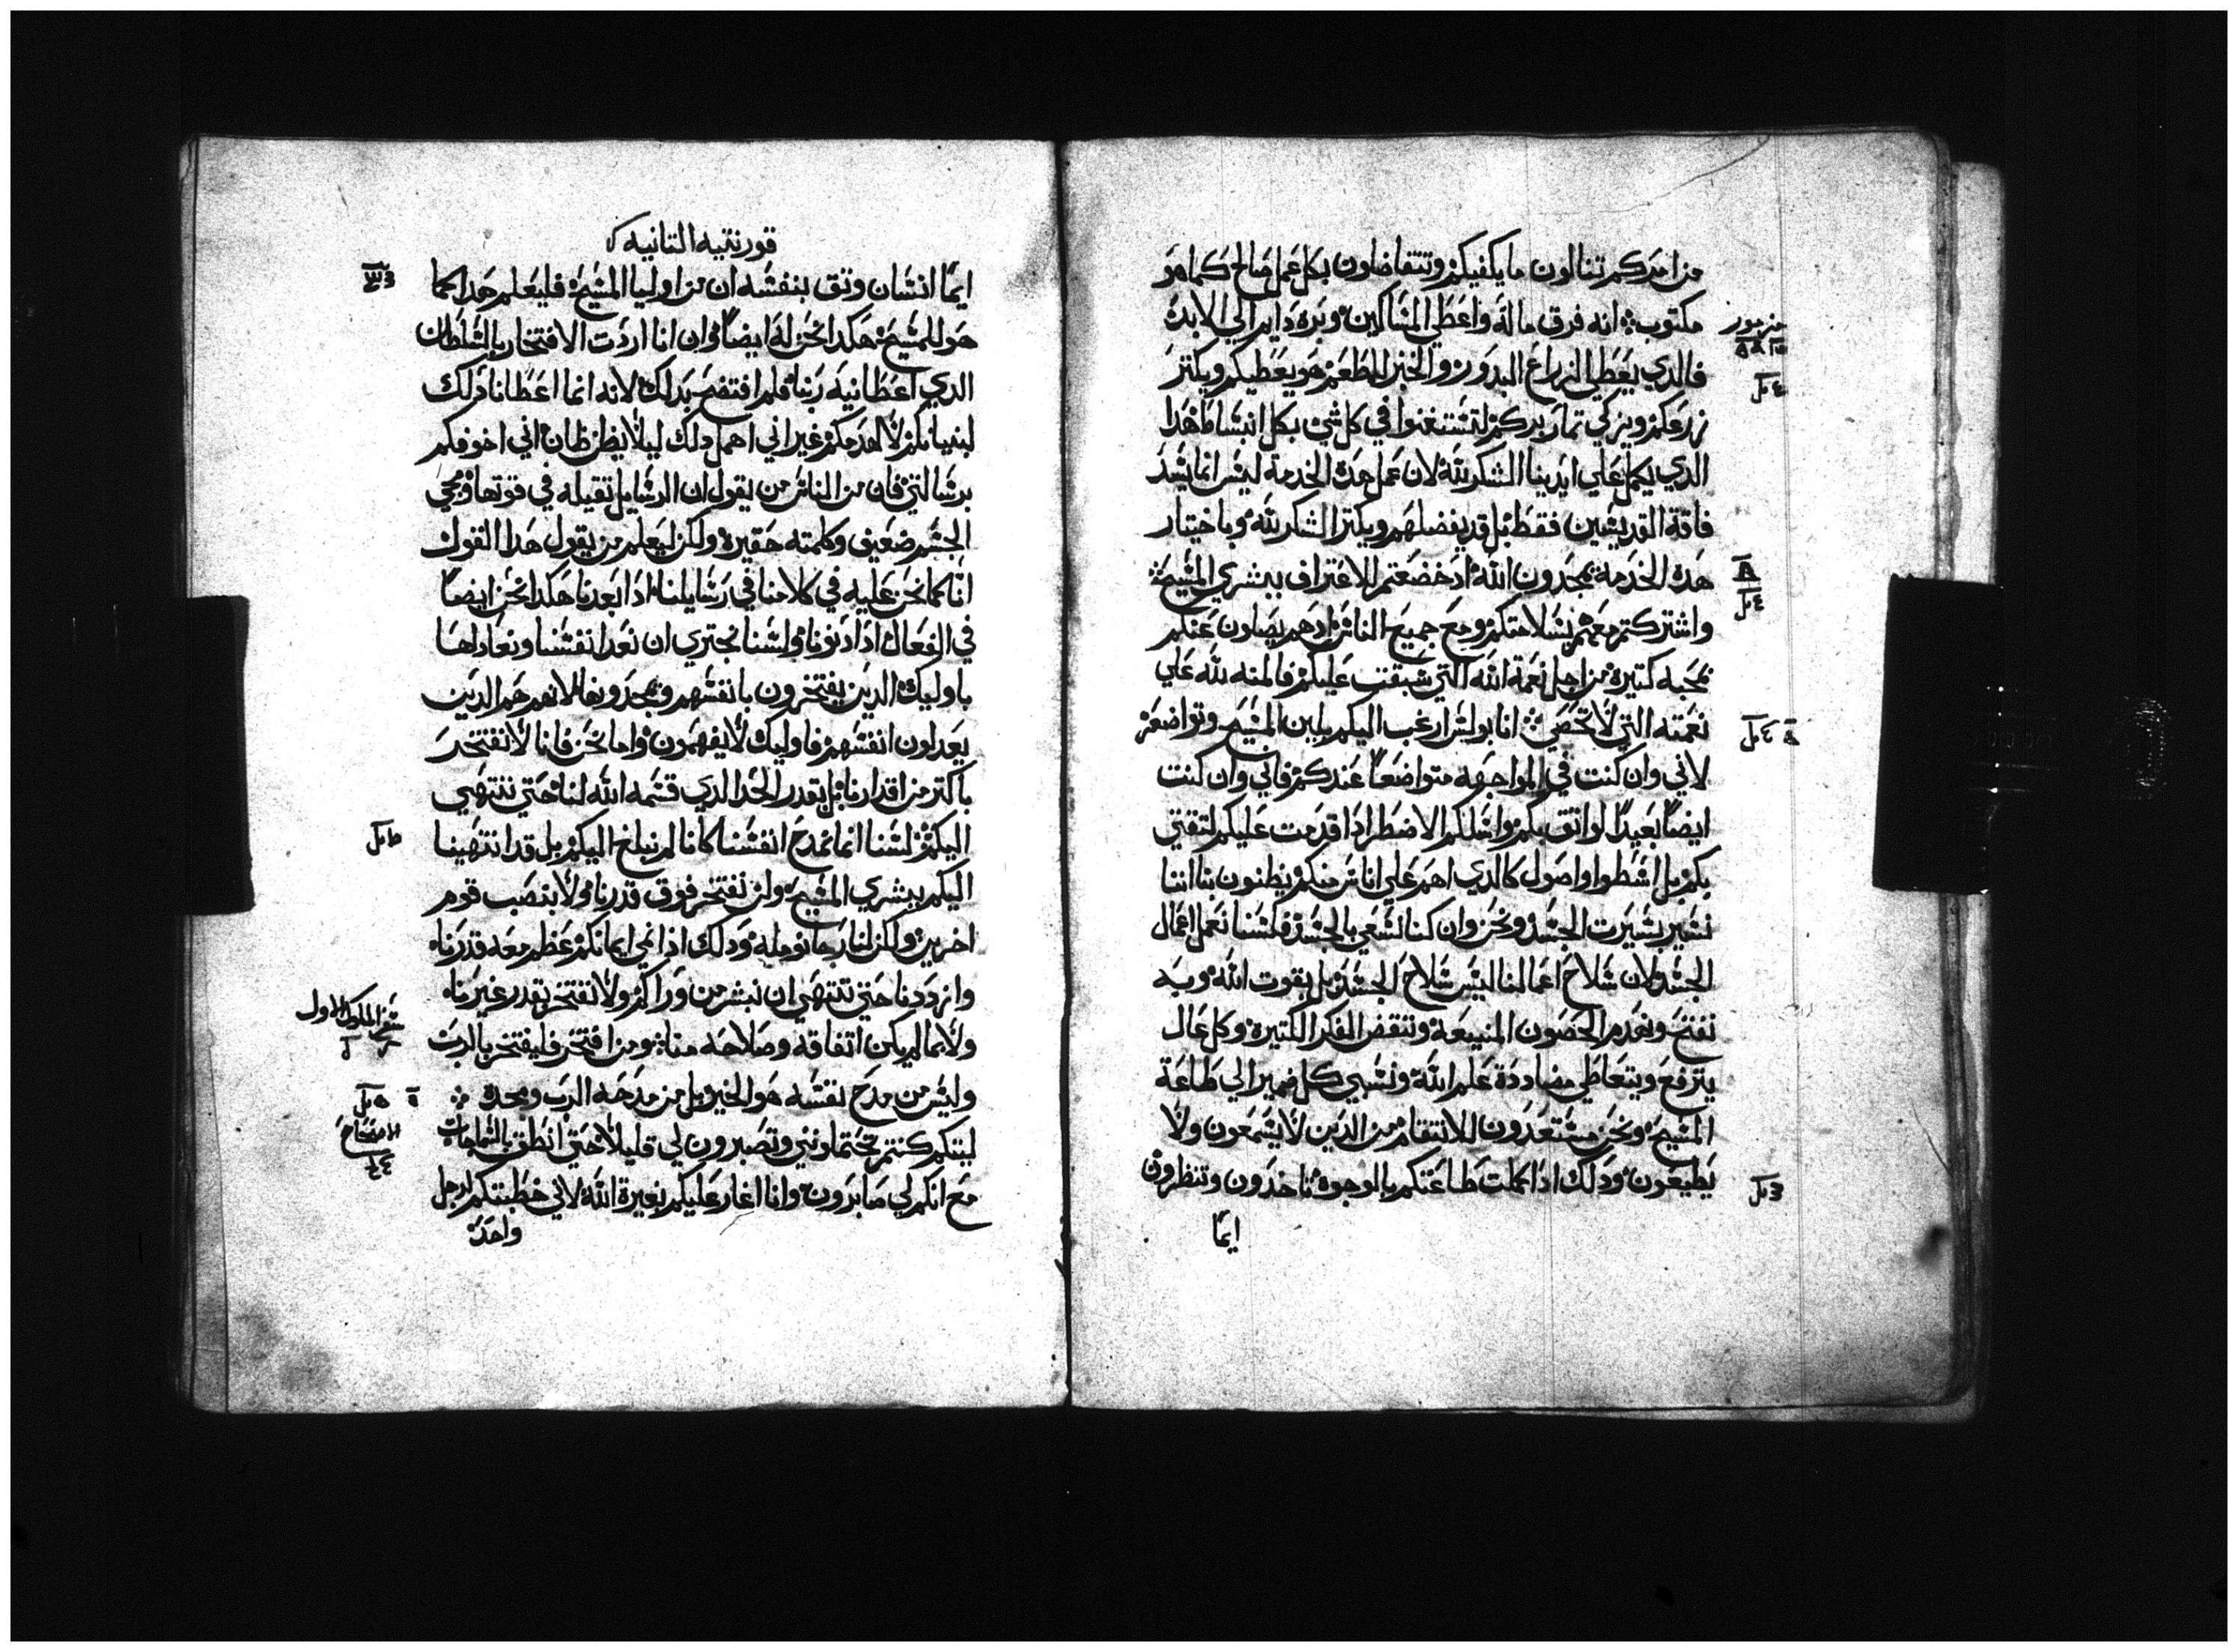 من احدكم تنالون ما يكفيكم وتتفاضلون بكل عمل صالح كما هو
مكتوب انه فرق ماله واعطي المساكين وبره دايم الي الابد
فالدي يعطي الزراع البدور والخبز للطعم هو يعطيكم ويكتر
زرعكم ويزكي تمار بركم لتستغنوا في كل شي بكل انبساط هدا
الدي يكمل علي ايدينا الشكر لله لان عمل هده الخدمة ليس انما يسد
فاقة القديسين فقط بل قد يفضلهم ويكتر الشكر لله وباختيار
هده الخدمة يمجدون الله اد خضعتم للاعتراف ببشري المسيح
واشتركتم معهم بسلامتكم ومع جميع الناس ادهم يصلون عنكم
بمحبه كتيرة من اجل نعمة الله التي سبقت عليكم فالمنه لله علي
نعمته التي لا تحصي انا بولس ارغب اليكم بلين المسيح وتواضعه
لاني وان كنت في المواجهه متواضعا عندكم فاني وان كنت
ايضا بعيدا لواتق بكم واسلكم الا اضطر ادا قدمت عليكم لتقتي
بكم بل اسطوا واصول كالدي اهم علي اناس منكم يظنون بنا اننا
نسير بسيرت الجسد ونحن وان كنا نسعي بالجسد فلسنا نعمل اعمال
الجسد لان سلاح اعمالنا ليس سلاح الجسد بل بقوت الله وبه
نفتح ونهدم الحصون المنيعة وننقض الفكر الكتيرة وكل عال
يترفع ويتعاطي مضاددة علم الله ونسبي كل ضمير الي طاعة
المسيح ونحن مستعدون للانتقام من الدين لا يسمعون ولا
يطيعون ودلك ادا كملت طاعتكم بالوجوه تاخدون وتنظرون
ايما
من مزمور
قورنتيه التانيه
ايما انسان وتق بنفسه ان من اوليا المسيح فليعلم هدا كما
هو للمسيح هكدا نحن له ايضا وان انا اردت الافتخار بالسلطان
الدي اعطانيه ربنا فلم افتضح بدلك لانه انما اعطانا دلك
لبنيانكم لا لهدمكم غير اني اهمل دلك ليلا يظن ظان اني اخوفكم
برسالتي فان من الناس من يقول ان الرسايل تقيله في قوتها ومجي
الجسم ضعيف وكلمته حقيرة ولكن ليعلم من يقول هدا القول
انا كما نحن عليه في كلامنا في رسايلنا ادا بعدنا هكدا نحن ايضا
في الفعال ادا دنونا ولسنا نجتري ان نعد انفسنا ونعادلها
باوليك الدين يفتخرون بانفسهم ويمجدونها لانهم هم الدين
يعدلون انفسهم فاوليك لا يفهمون واما نحن فانا لا نفتخر
باكتر من اقدارنا بل بقدر الحد الدي قسمه الله لنا حتي ننتهي
اليكم لسنا انما نمدح انفسنا كانا لم نبلغ اليكم بل قد انتهينا
اليكم ببشري المسيح ولن نفتخر فوق قدرنا ولا بنصب قوم
اخرين ولكن لنا رجا نومله ودلك ادا نمي ايمانكم عظم معه قدرنا
وازددنا حتي ننتهي ان نبشر من وراكم ولا نفتخر بقدر غيرنا
ولا بما لم يكن اتفاقه وصلاحه منا ومن افتخر فليفتخر بالرب
وليس من مدح نفسه هو الخير بل من مدحه الرب ومجده
ليتكم كنتم تحتملونني وتصبرون لي قليلا حتي انطق بالسماجات
مع انكم لي صابرون وانا اغار عليكم بغيرة الله لاني خطبتكم لرجل
واحد
سفر الملوك الاول
الاصحاح